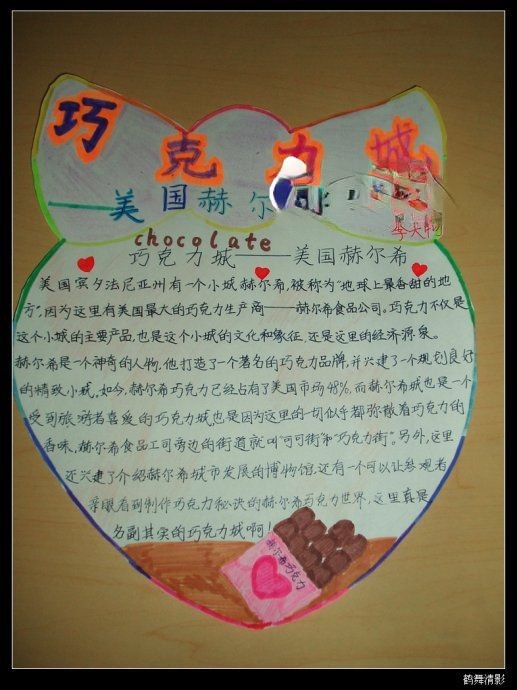 巧克力城
——美国赫尔
chocolate
巧克力城——美国赫尔希
美国宾夕法尼亚州有一个小城赫尔希,被称为"地球上最香甜的地
方",因为这里有美国最大的巧克力生产商——赫尔希食品公司。巧克力不仅是
这个小城的主要产品,也是这个小城的文化和象征,还是这里的经济源泉。
赫尔希是一个神奇的人物,他打造了一个著名的巧克力品牌,并兴建了一个规划良好
的精致小城。如今,赫尔希巧克力已经占有了美国市场48%,而赫尔希城也是一个
受到旅游者喜爱的巧克力城也是因为这里的一切似乎都弥散着巧克力的
香味,赫尔希食品公司旁边的街道就叫"可可街"和"巧克力街"。另外,这里
还兴建了介绍赫尔希城市发展的博物馆,还有一个可以让参观者
亲眼看到制作巧克力秘诀的赫尔希巧克力世界,这里真是
名副其实的巧克力城啊!
赫尔希巧克力
鹤舞清影